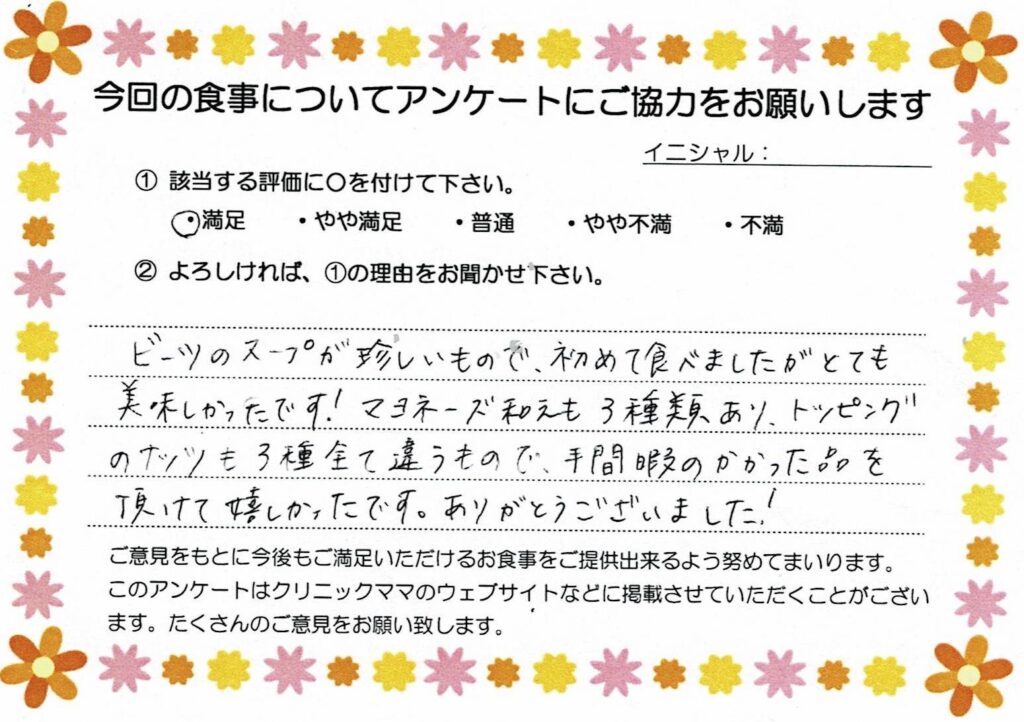 今回の食事についてアンケートにご協力をお願いします
イニシャル：
① 該当する評価に〇を付けて下さい。
・満足 ・やや満足 ・普通 ・やや不満 ・不満
② よろしければ、①の理由をお聞かせ下さい。
ビーツのスープが珍しいもので、初めて食べましたがとても
美味しかったです！マヨネーズ和えも3種類あり、トッピング
のナッツも3種全て違うもので、手間暇のかかった品を
頂けて嬉しかったです。ありがとうございました！
ご意見をもとに今後もご満足いただけるお食事をご提供出来るよう努めてまいります。
このアンケートはクリニックママのウェブサイトなどに掲載させていただくことがござい
ます。たくさんのご意見をお願い致します。